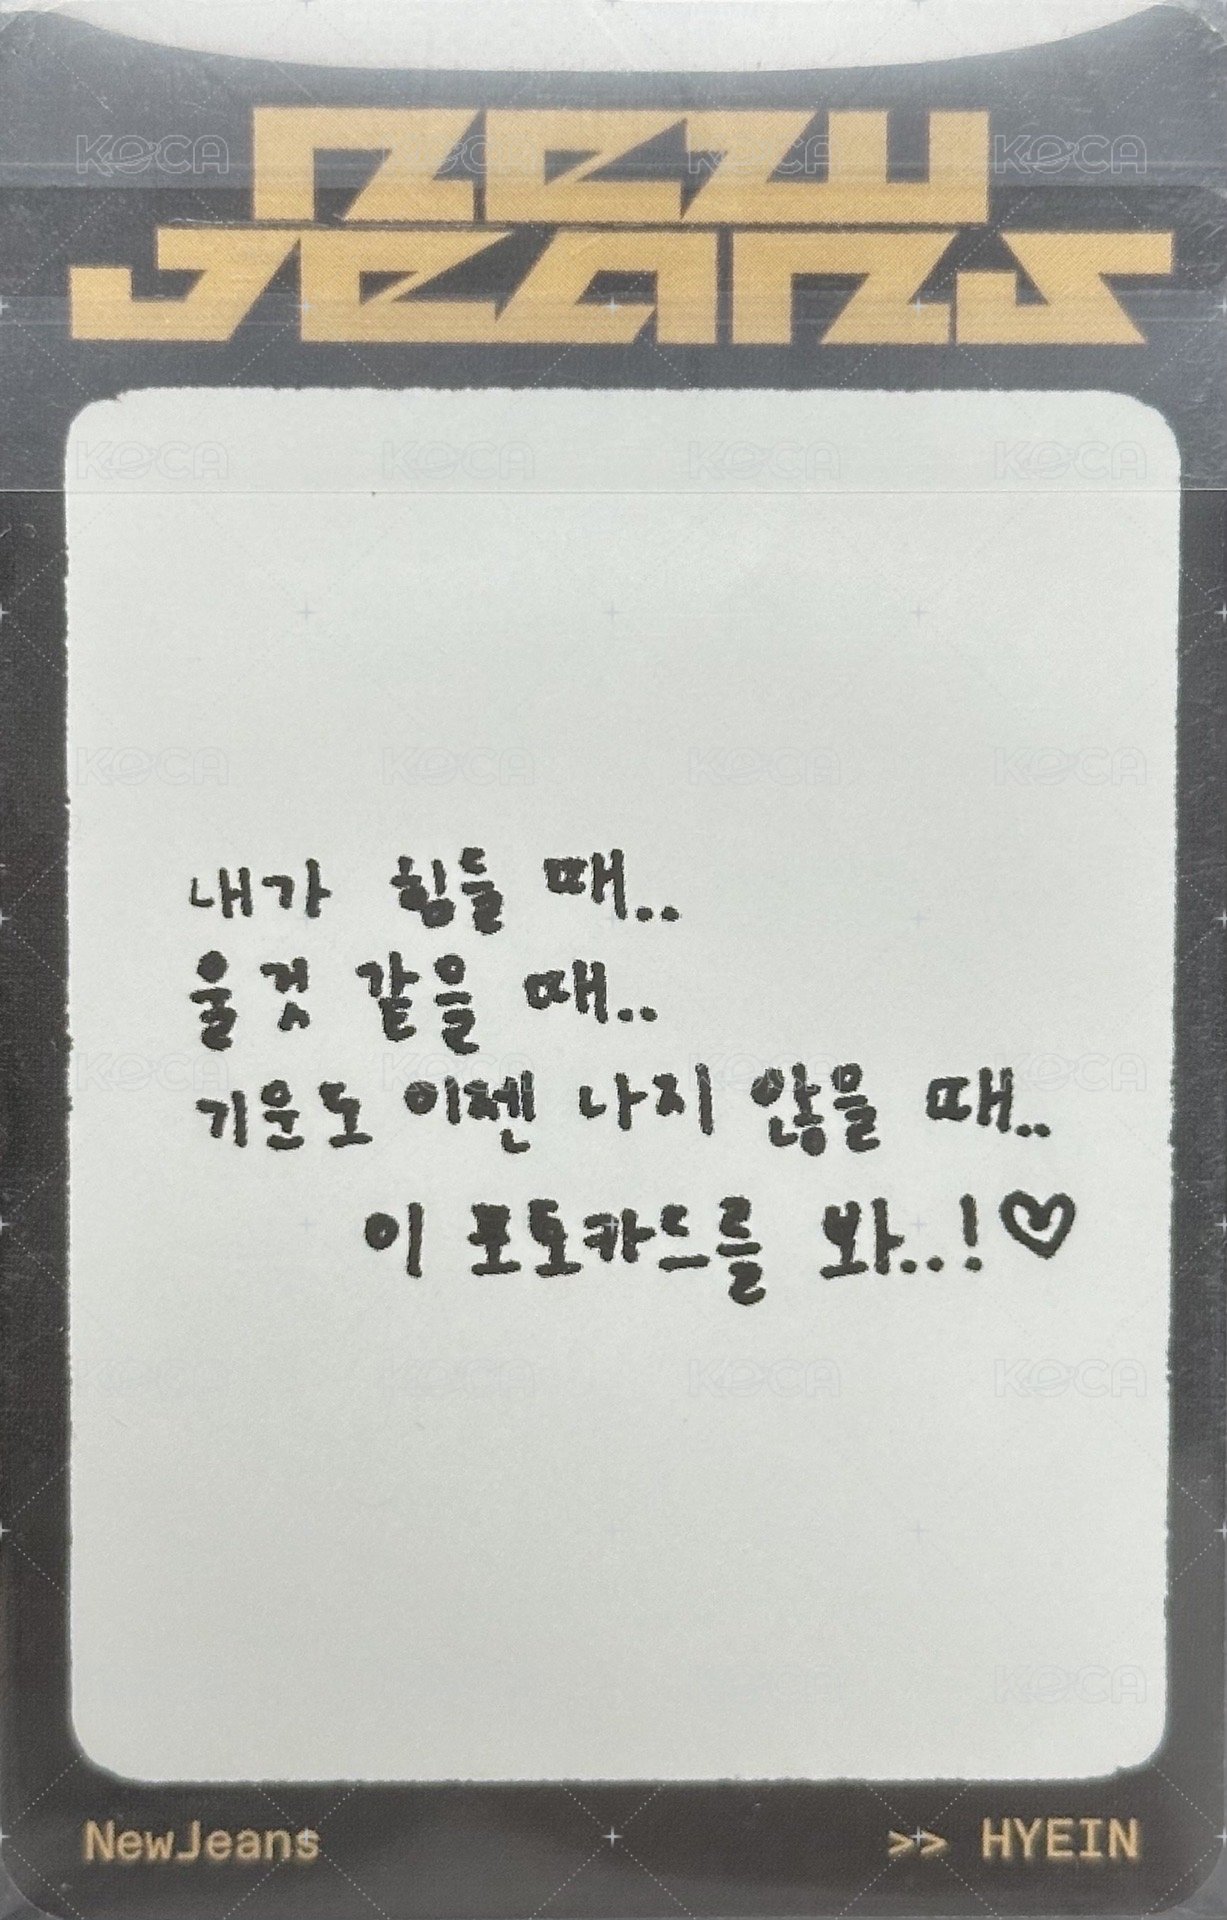 new
jeans
내가 힘들 때..
울것 같을 때..
기운도 이젠 나지 않을 때..
이 포토카드를 봐..!♡
NewJeans >> HYEIN
KOCA